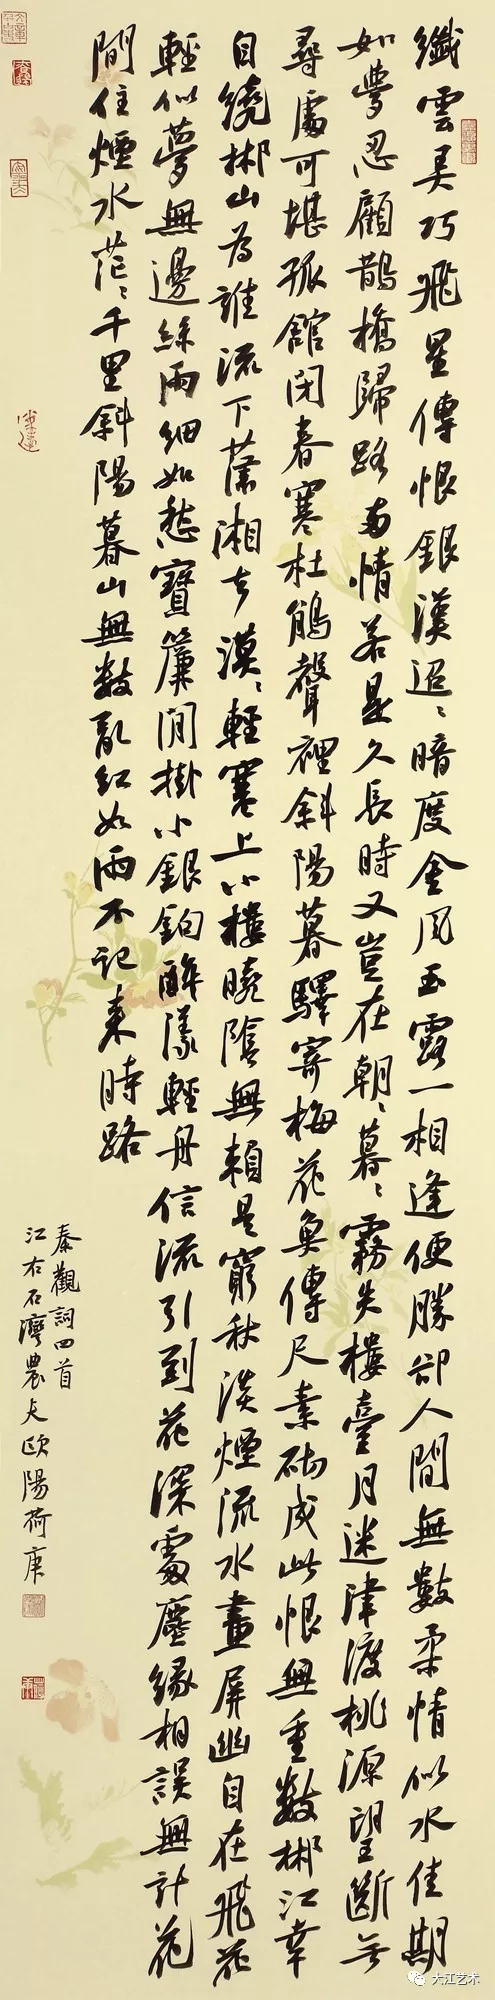 纖雲弄巧飛星傳恨銀漢迢〻暗度金風玉露一相逢便勝卻人間無數柔情似水佳期
如夢忍顧鵲橋歸路兩情若是久長時又豈在朝〻暮〻霧失樓臺月迷津渡桃源望斷無
尋處可堪孤館閉春寒杜鵑聲裡斜陽暮驛寄梅花魚傳尺素砌成此恨無重數郴江幸
自繞郴山為誰流下瀟湘去漠〻輕寒上小樓曉陰無賴是窮秋淡煙流水畫屏幽自在飛花
輕似夢無邊絲雨細如愁寶簾閒掛小銀鉤醉漾輕舟信流引到花深處塵緣相誤無計花
間住煙水茫〻千里斜陽暮山無數亂紅如雨不記來時路
秦觀詞四首
江右石灣農夫歐陽荷庚
大江艺术